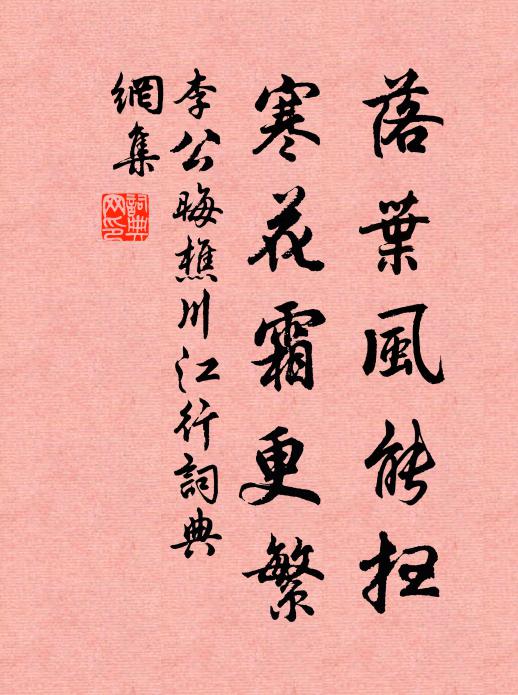 落葉風能掃
寒花霜更繁
李公晦樵川江行詞典
網集
詞典網印